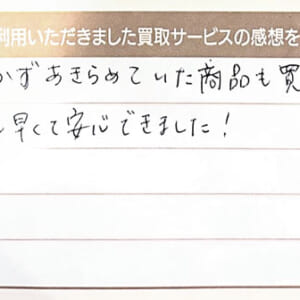 利用いただきました買取サービスの感想を
かずあきらめていた商品も買
早くて安心できました!